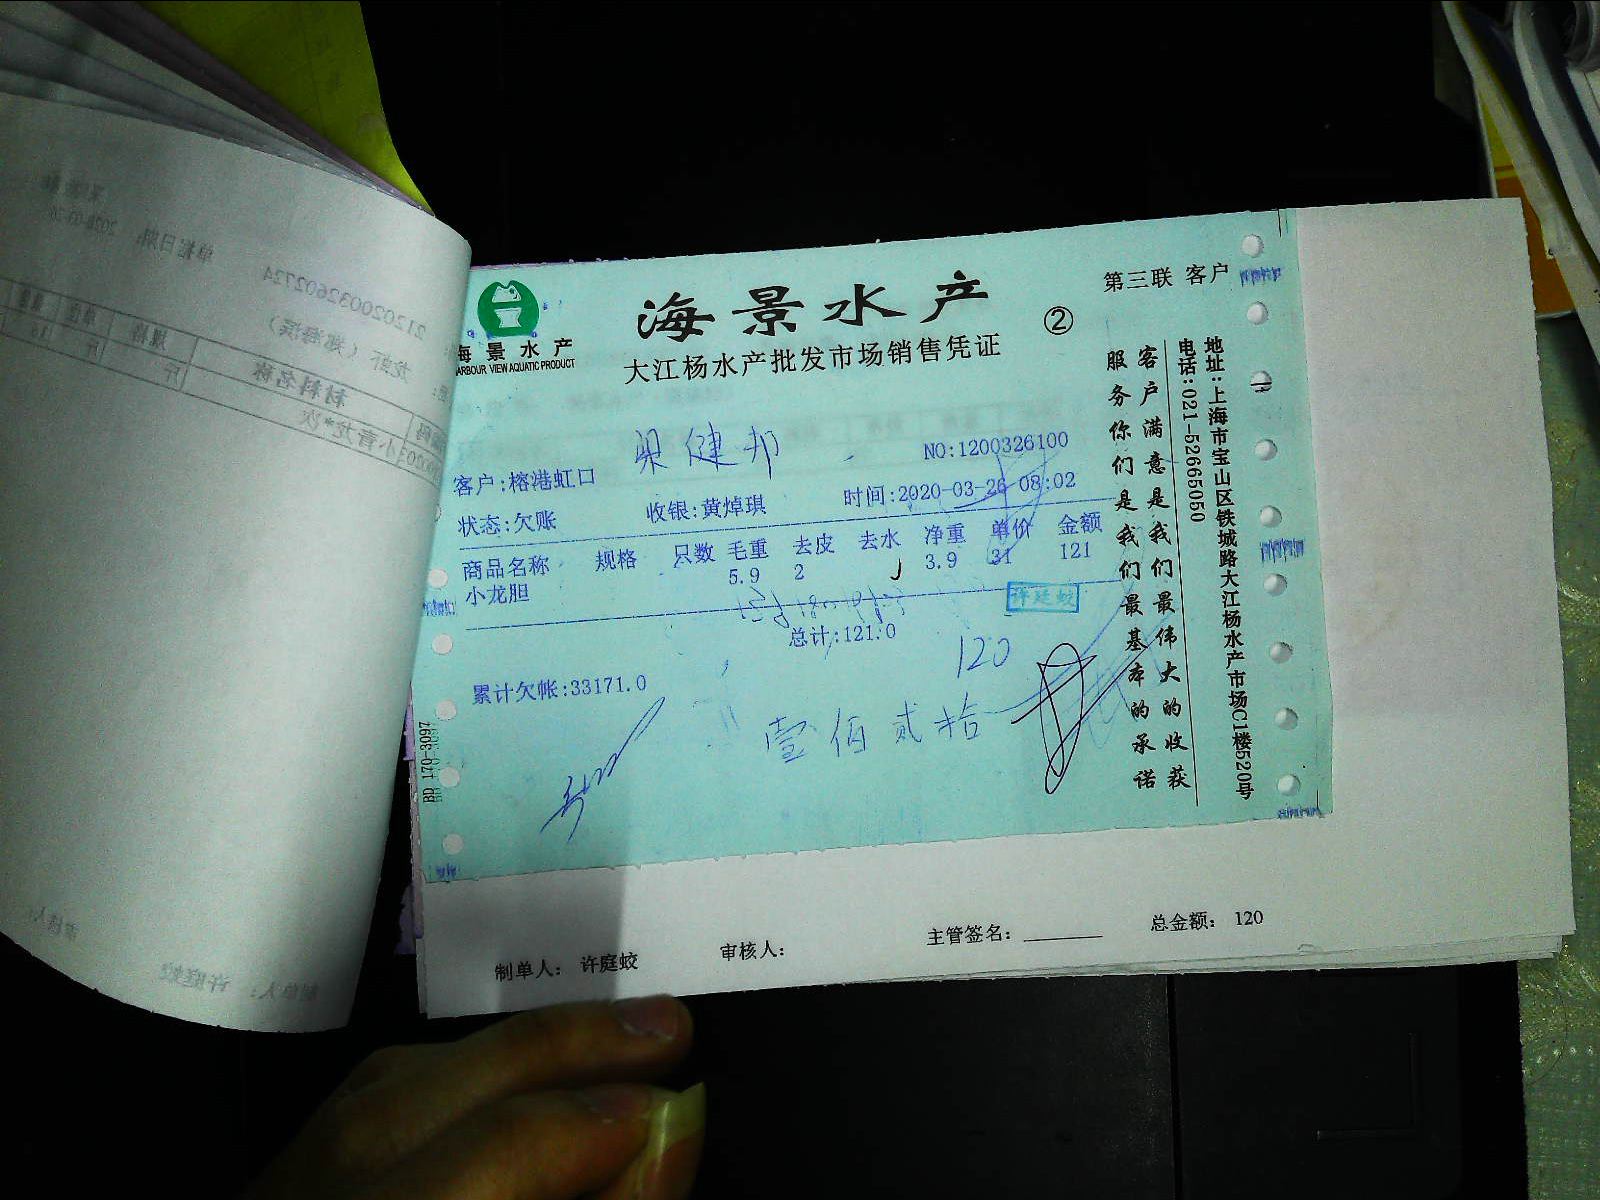 海景水产
HARBOUR VIEW AQUATIC PRODUCT
海景水产
大江杨水产批发市场销售凭证
②
第三联 客户
梁健邦
NO:1200326100
客户:榕港虹口
状态:欠账 收银:黄焯琪 时间:2020-03-26 08:02
商品名称 规格 只数 毛重 去皮 去水 净重 单价 金额
小龙胆 5.9 2 3.9 31 121
许廷蛟
总计:121.0
120
累计欠帐:33171.0
壹佰贰拾
客户满意是我们最伟大的收获
服务你们是我们最基本的承诺
地址:上海市宝山区铁城路大江杨水产市场C1楼520号
电话:021-52665050
BD 170-3097
制单人: 许庭蛟 审核人: 主管签名: 总金额: 120
212020032602724
单据日期:
龙虾
材料名称 规格
小青龙*次 斤
制单人: 许庭蛟